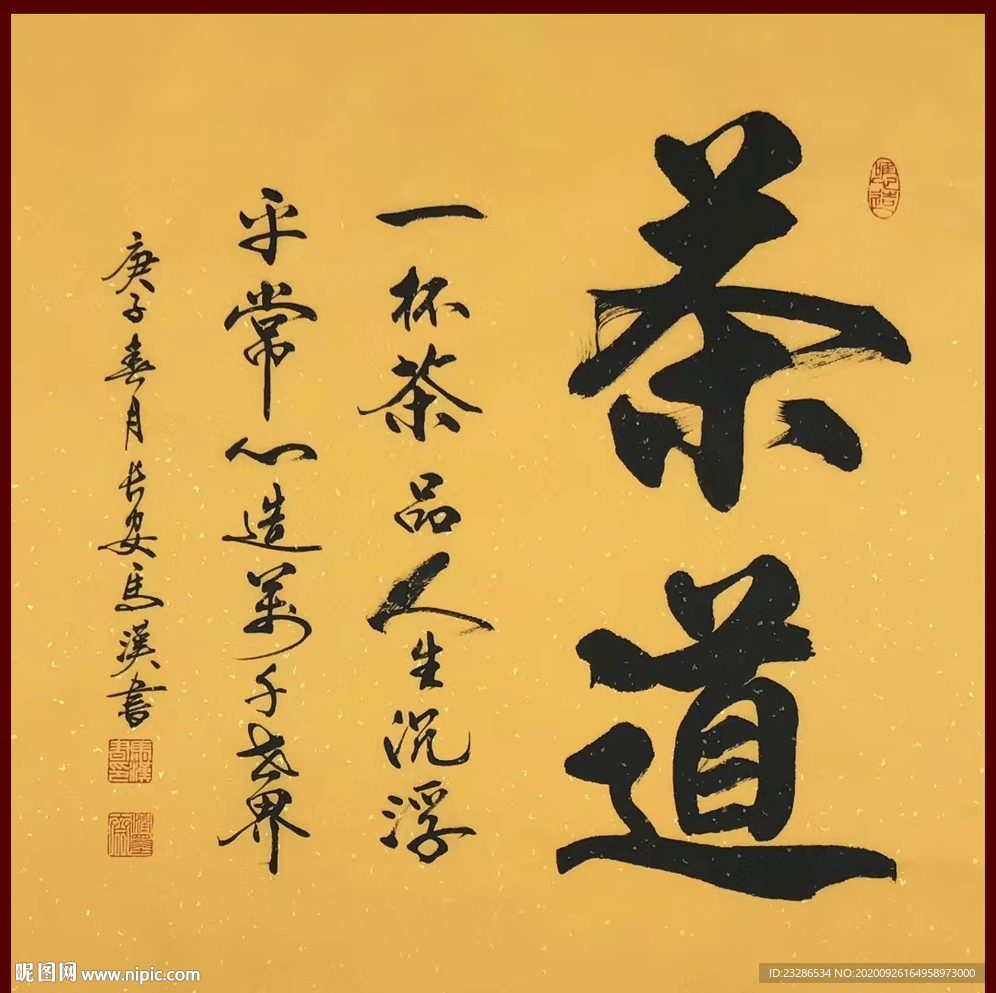 茶道
一杯茶品人生沉浮
平常心造萬千世界
庚子春月長安馬漢書
昵图网 www.nipic.com
ID:23286534 NO:20200926164958973000